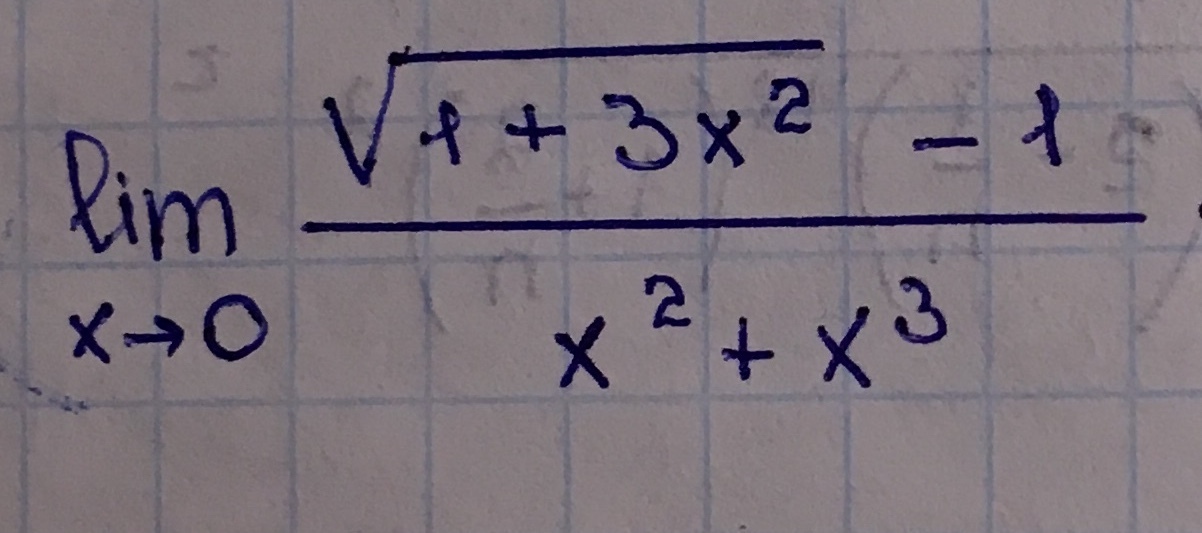 lim x→0 (√(1 + 3x²) - 1) / (x² + x³)